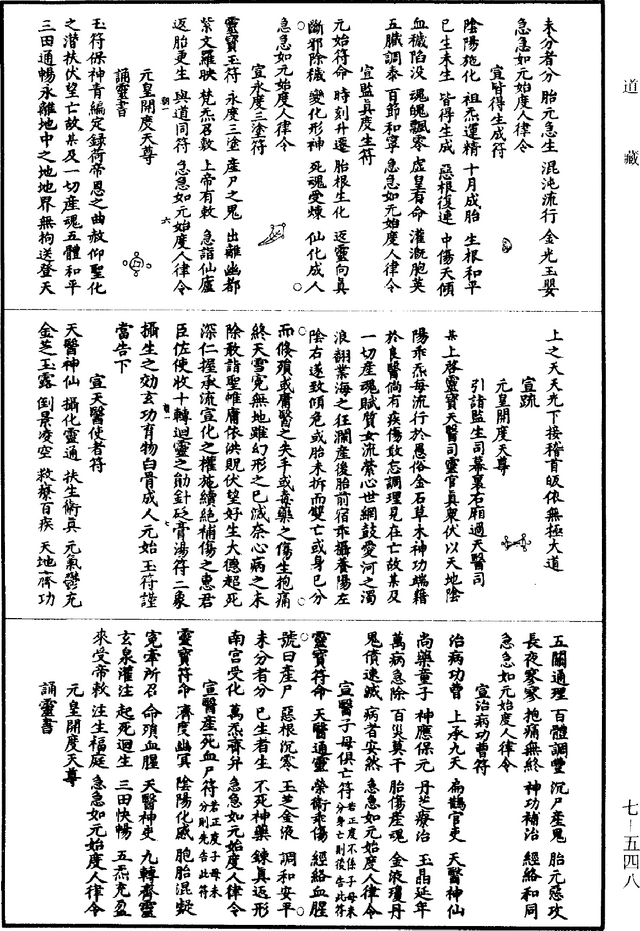 未分者分　胎元急生　混沌流行　金光玉嬰
急急如元始度人律令
宣皆得生成符
陰陽施化　祖炁運精　十月成胎　生根和平
已生未生　皆得生成　惡根復連　中傷天傾
血穢陷没　魂魄飄零　虛皇有命　灌溉胞英
五臟調泰　百節和寧　急急如元始度人律令
宣監真度生符
元始符命　時刻升遷　胎根生化　返靈向真
斷邪除穢　變化形神　死魂受煉　仙化成人
急急如元始度人律令
宣永度三塗符
靈寶玉符　永度三塗　產尸之鬼　出離幽都
紫文羅映　梵炁召敕　上帝有敕　急詣仙廬
返胎更生　與道同符　急急如元始度人律令
元皇開度天尊
誦靈書
玉符保神青編定録荷帝恩之曲赦仰聖化
之潛扶伏望亡故某及一切產魂五體和平
三田通暢永離地中之地地界無拘送登天
上之天天光下接稽首皈依無極大道
宣疏
元皇開度天尊
引詣監生司幕裏右厢過天醫司
某上啓靈寶天醫司靈官真衆伏以天地陰
陽乖炁每流行於愚俗金石草木神功端藉
於良醫倘有疾傷敢忘調理見在亡故某及
一切產魂賦質女流縈心世網鼓愛河之濁
浪翻業海之狂瀾產後胎前宿乖攝養陽左
陰右遂致傾危或胎未拆而雙亡或身已分
而倏殞或庸醫之失手或毒藥之傷生抱痛
終天雪冤無地雖幻形之已滅奈心病之未
除敢詣聖帷庸依洪貺伏望好生大德超死
深仁握承流宣化之權施續絶補傷之惠君
臣佐使收十轉迴靈之勛針砭膏湯符二象
攝生之効玄功育物白骨成人元始玉符謹
當告下
宣天醫使者符
天醫神仙　攝化靈通　扶生術真　元氣鬱充
金芝玉露　倒景凌空　救療百疾　天地齊功
五關通理　百體調豐　沉尸產鬼　胎元惡攻
長夜寥寥　抱痛無終　神功補治　經絡和同
急急如元始度人律令
宣治病功曹符
治病功曹　上承九天　扁鵲官吏　天醫神仙
尚藥童子　神應保元　丹芝療治　玉晶延年
萬病急除　百災莫干　胎傷產魂　金液瓊丹
鬼債速滅　病者安然　急急如元始度人律令
宣醫子母俱亡符　若正度不係子母未分身亡則後告此符
靈寶符命　天醫通靈　榮衛乖傷　經絡血腥
號曰產尸　惡根沉零　玉芝金液　調和安平
未分者分　已生者生　不死神藥　鍊真返形
南宮受化　萬炁齊并　急急如元始度人律令
宣醫產死血尸符　若正度子母未分則先告此符
靈寶符命　濟度幽冥　陰陽化感　胞胎混凝
冤牽所召　命殞血腥　天醫神吏　九轉齊靈
玄泉灌注　起死迴生　三田快暢　五炁充盈
來受帝敕　注生福庭　急急如元始度人律令
元皇開度天尊
誦靈書
道藏
七—五四八